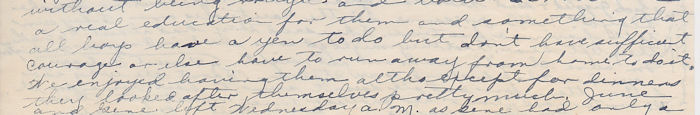 without being
a real education for them and something that
all boys have a yen to do but don't have sufficient
courage or else have to run away from home to do it.
We enjoyed having them altho except for dinners
they looked after themselves pretty much. June
and Gene left Wednesday a. M. as Gene had only a